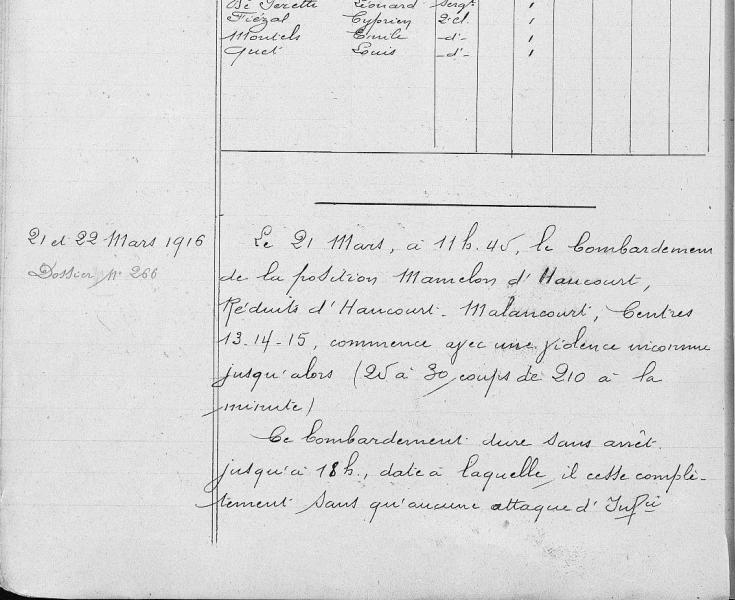 Léonard Sergt
Fiézal Cyprien 2e cl.
Montels Emile -d°-
Quet Louis -d°-
21 et 22 Mars 1916
Dossier N° 266
Le 21 Mars, à 11h.45, le bombardement
de la position Mamelon d'Haucourt,
Réduits d'Haucourt-Malancourt, Centres
13-14-15, commence avec une violence inconnue
jusqu'alors (25 à 30 coups de 210 à la
minute)
Ce bombardement dure sans arrêt
jusqu'à 18h., date à laquelle il cesse complè-
tement sans qu'aucune attaque d'Infie